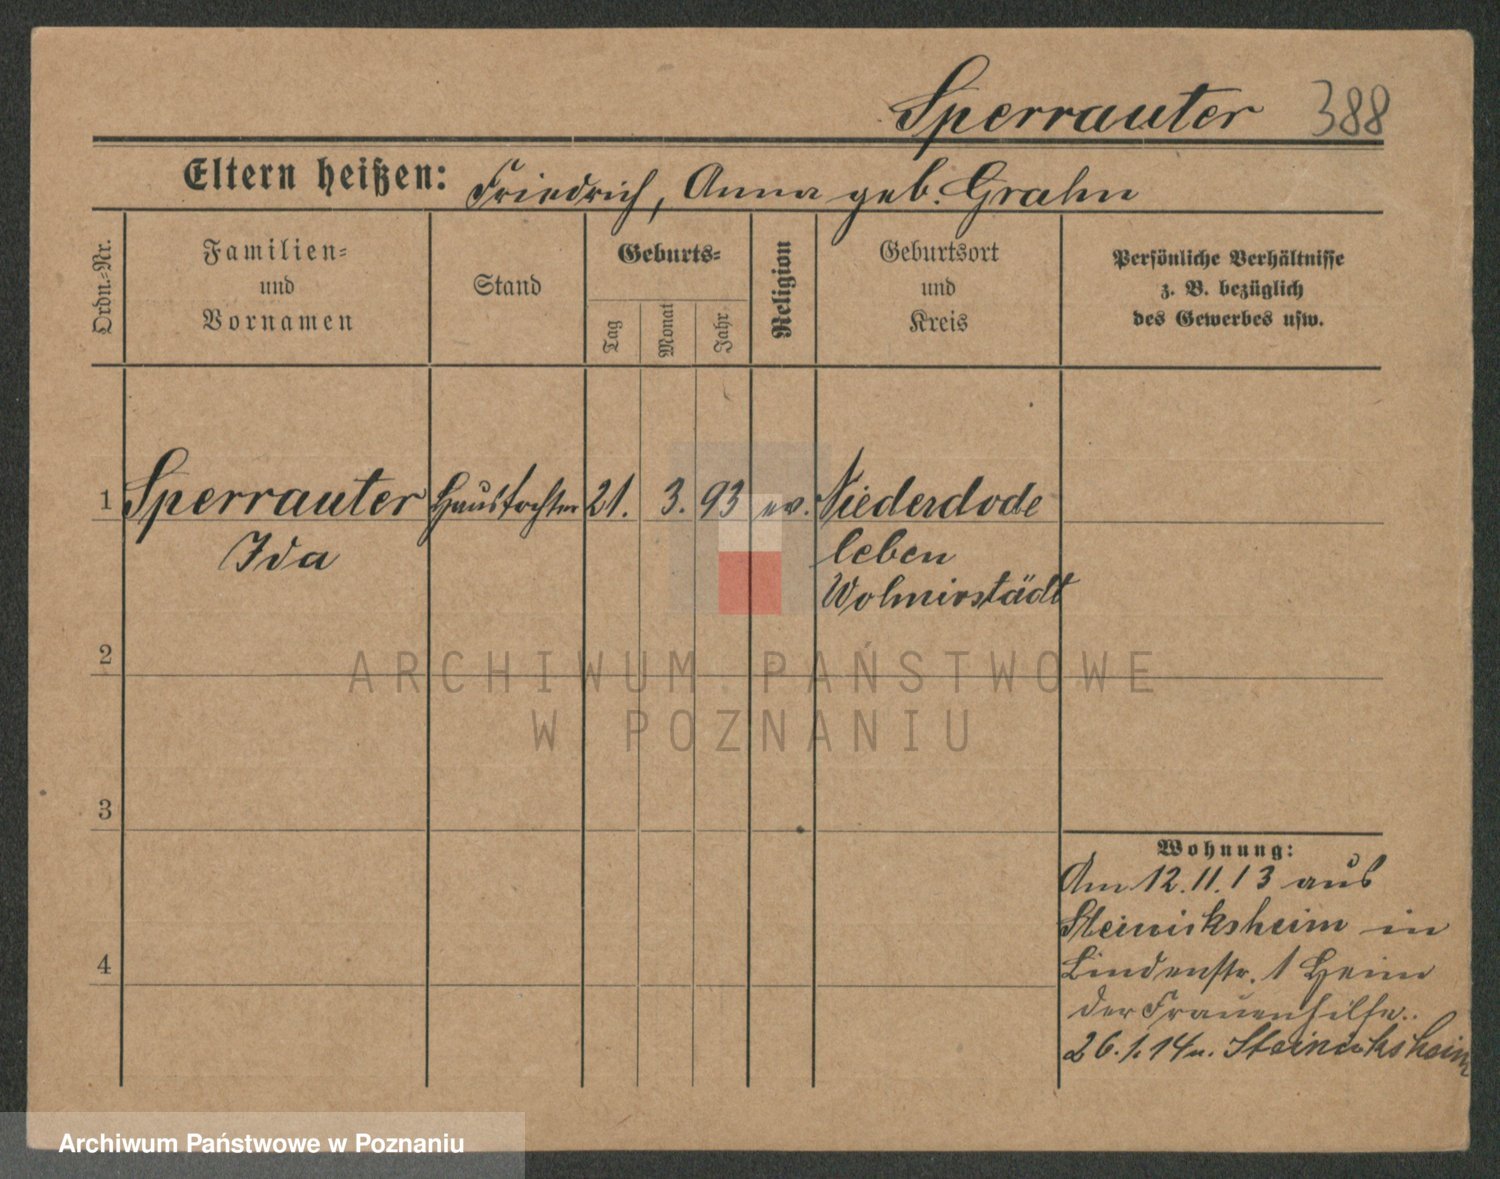 Sperrauter 388
Eltern heißen: Friedrich, Anna geb. Grahn
Ordn.-Nr.
Familien-
und
Vornamen
Stand
Geburts-
Tag
Monat
Jahr
Religion
Geburtsort
und
Kreis
Persönliche Verhältnisse
z. B. bezüglich
des Gewerbes usw.
1 Sperrauter Haustochter 21. 3. 93 ev. Niederdode
Ida leben
Wolmirstädt
2
ARCHIWUM PAŃSTWOWE
W POZNANIU
3
Wohnung:
Am 12.11.13 aus
Steinicksheim in
4
Lindenstr. 1 Heim
der Frauenhilfe.
26.1.14 n. Steinicksheim
Archiwum Państwowe w Poznaniu